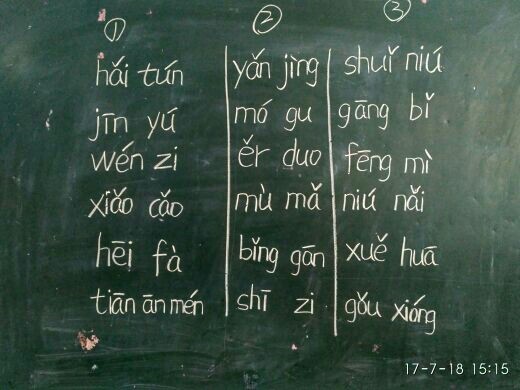 ①
hǎi tún
jīn yú
wén zi
xiǎo cǎo
hēi fà
tiān ān mén
②
yǎn jìng
mó gu
ěr duo
mù mǎ
bǐng gān
shī zi
③
shuǐ niú
gāng bǐ
fēng mì
niú nǎi
xuě huā
gǒu xióng
17-7-18 15:15